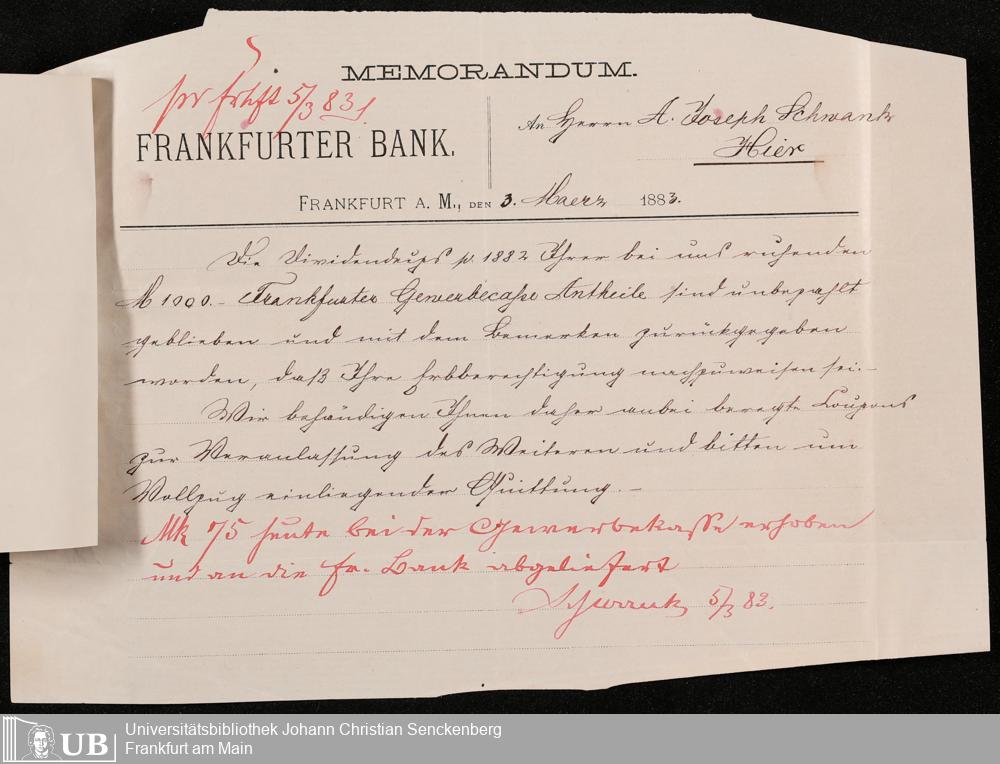 MEMORANDUM.
pr frhft 5/3 83
FRANKFURTER BANK.
An Herrn A. Joseph Schwank
Hier
FRANKFURT A. M., DEN 3. Maerz 1883.
Die Dividendcups p. 1882 Ihrer bei uns ruhenden
M 1000.- Frankfurter Gewerbecasse Antheile sind unbezahlt
geblieben und mit dem Bemerken zurückgegeben
worden, daß Ihre Erbberechtigung nachzuweisen sei.-
Wir behändigen Ihnen daher anbei beregte Coupons
zur Veranlassung des Weiteren und bitten um
Vollzug einliegender Quittung.-
Mk 75 heute bei der Gewerbekasse erhoben
und an die Fr. Bank abgeliefert
Schwank 5/3 83.
Universitätsbibliothek Johann Christian Senckenberg
UB Frankfurt am Main